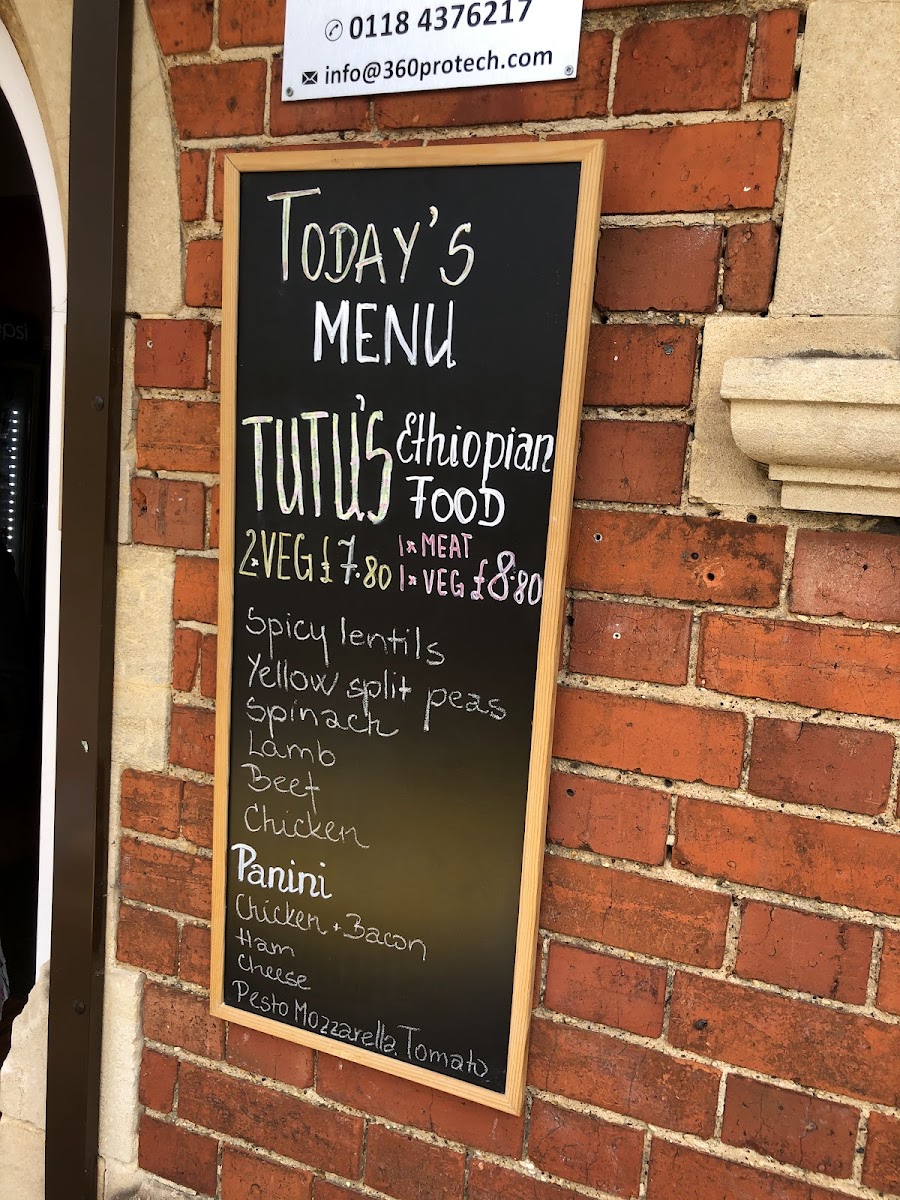 0118 4376217
info@360protech.com
TODAY'S
MENU
TUTU'S Ethiopian
FOOD
2xVEG £7.80
1x MEAT
1x VEG £8.80
Spicy lentils
Yellow split peas
Spinach
Lamb
Beef
Chicken
Panini
Chicken + Bacon
Ham
Cheese
Pesto Mozzarella Tomato